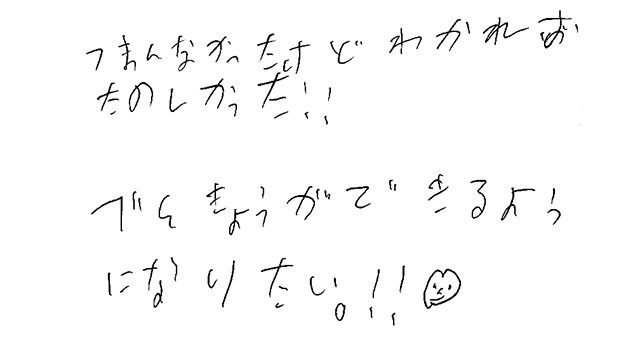 つまんなかっただけどわかれば
たのしかった!!
べんきょうができるよう
になりたい。!!